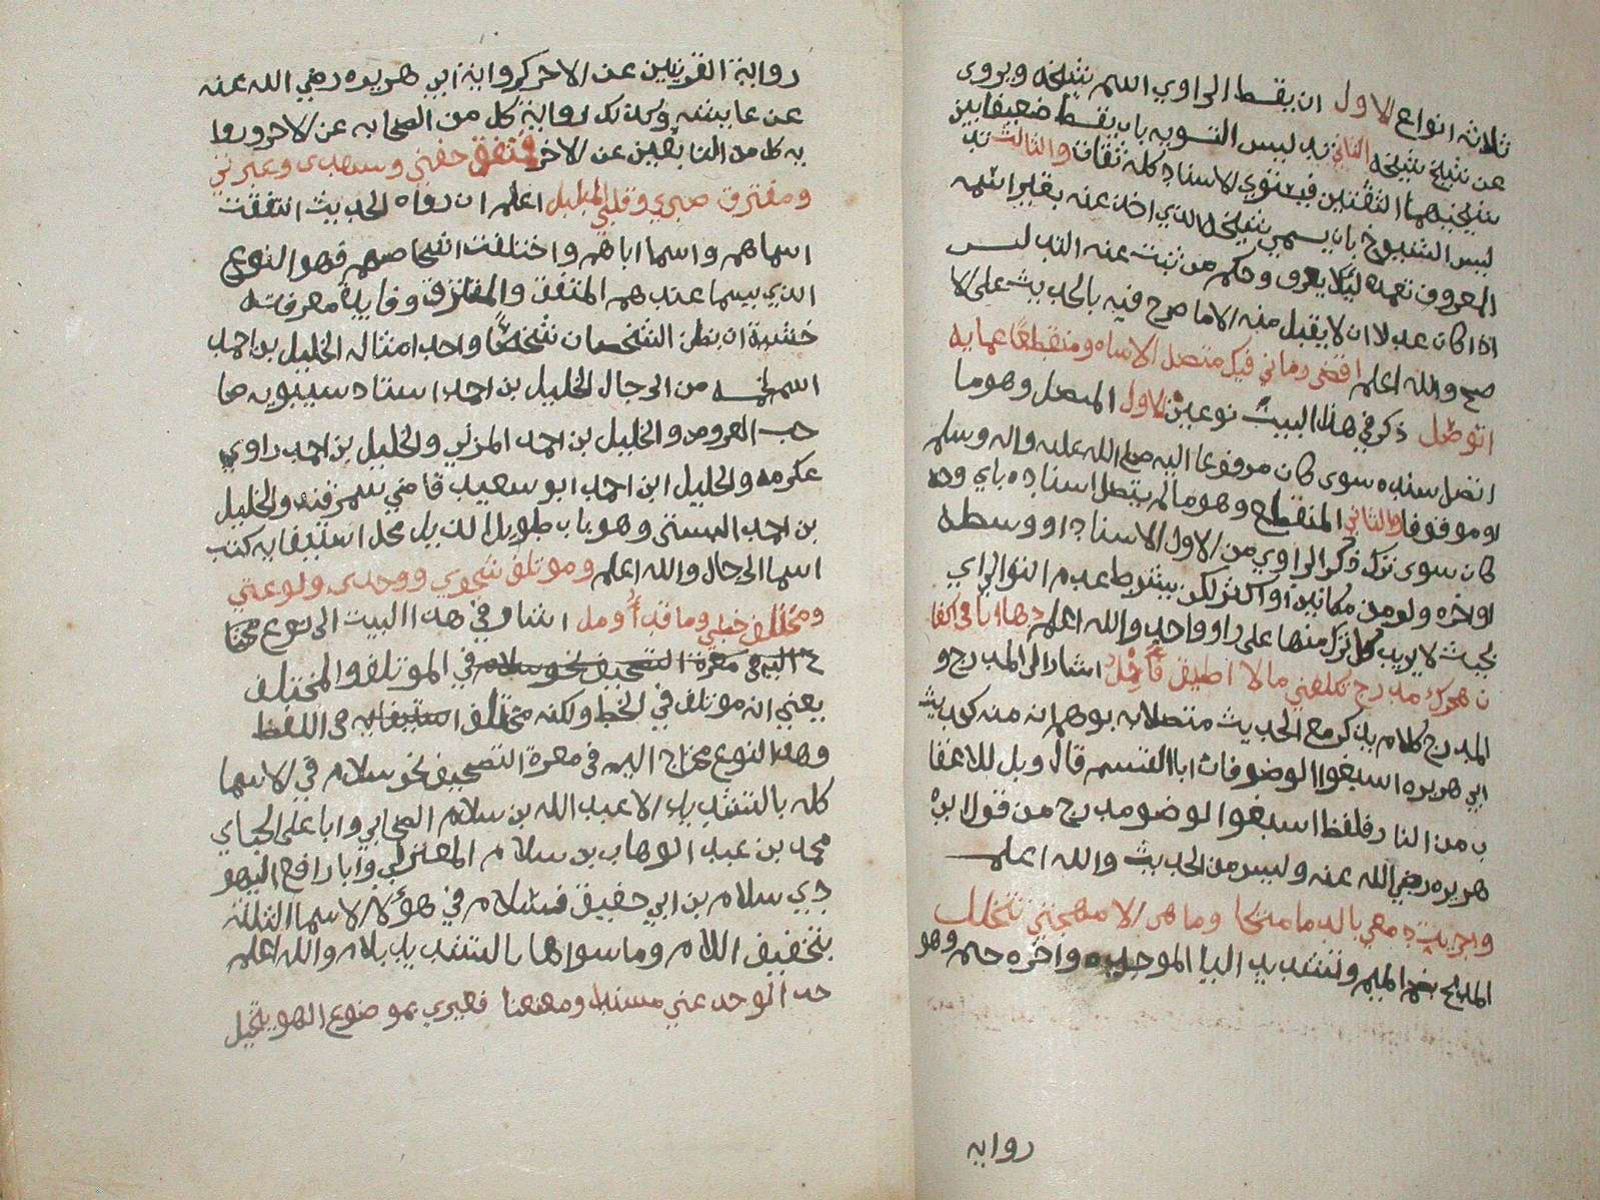 ثلاثه انواع الاول ان يقسط الراوي اسم شيخه ويروى
عن شيخ شيخه الثاني تدليس التسويه بان يقسط ضعيفا بين
شيخيهما الثقتين فيستوي الاسناد كله ثقات والثالث تد
ليس الشيوخ بان يسمي شيخه الذي اخذ عنه بغير اسمه
المعروف نعمه ليلا يعرف وحكم من ثبت عنه التدليس
اذا كان عدلا ان لا يقبل منه الا ما صرح فيه بالحديث على الا
صح والله اعلم اقضى زماني فيك متصل الاساه ومنقطعا عما به
اتوصل ذكر في هذا البيت نوعين الاول المتصل وهو ما
اتصل سنده سوى كان مرفوعا اليه صلى الله عليه واله وسلم
او موقوفا والثاني المنقطع وهو ما لم يتصل اسناده باي وجه
كان سوى ترك ذكر الراوي من الاول الاسناد او وسطه
او اخره ولو من مكانين او اكثر لكن بيشترط عدم التوالي اي
بحيث لا يزيد كل ترك منها على راو واحد والله اعلم وها انا في اكفا
ن هجرك مدرج تكلفني مالا اطيق فاحمل اشار الى المدرج و
المدرج كلام يذكر مع الحديث متصلا به يوهم انه منه كحديث
ابي هريره اسبغوا الوضو فان ابا القسم قال ويل للاعقا
ب من النار فلفظ اسبغوا الوضو مدرج من قول ابي
هريره رضي الله عنه وليس من الحديث والله اعلم
واجريت دمعي بالدما مدبجا وما هي الا مهجتي تتحلل
المدبج بضم الميم وتشديد اليا الموحده واخره جيم وهو
روايه
رواية القرينين عن الاخر كرواية ابي هريره رضي الله عنه
عن عايشه وكذلك رواية كل من الصحابه عن الاخر وروا
يه كل من التابعين عن الاخر فمتفق جفني وسهدى وعبرتي
ومفترق صبري وقلبي المبلبل اعلم ان رواه الحديث اتفقت
اسماهم واسما اباهم واختلفت اشخاصهم فهو النوع
الذي يسما عندهم المتفق والمفترق وفايدة معرفته
خشية ان يظن الشخصان شخصا واحدا مثاله الخليل بن احمد
اسم لخمسه من الرجال الخليل بن احمد استاد سيبويه صا
حب العروض والخليل بن احمد المزني والخليل بن احمد راوي
عكرمه والخليل ابن احمد ابو سعيد قاضي سمرقند والخليل
بن احمد البستي وهو باب طويل الذيل محل استيفايه كتب
اسما الرجال والله اعلم وموتلف شجوي ووجدى ولوعتي
ومختلف حظي وما فيك أومل اشار في هذا البيت الى نوع محتا
ج اليه في معرفة التصحيف نحو سلام في الموتلف والمختلف
يعني انه موتلف في الخط ولكنه مختلف استيفايه في اللفظ
وهذا النوع محتاج اليه في معرفة التصحيف نحو سلام في الاسما
كله بالتشديد الا عبد الله بن سلام الصحابي وابا على الجباي
محمد بن عبد الوهاب بن سلام المعتزلي وابا رافع اليهو
دي سلام بن ابي حقيق فسلام في هؤلا الاسما الثلثة
بتخفيف اللام وما سواها بالتشديد بلام والله اعلم
خد الوجد عني مسندا ومعنعنا فغيري بموضوع الهوى يتحيل